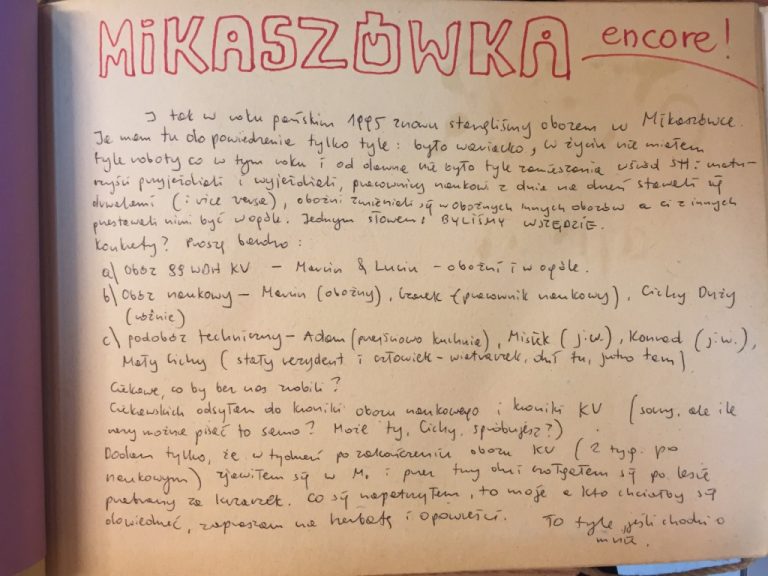 MIKASZÓWKA encore!
I tak w roku pańskim 1995 znowu stanęliśmy obozem w Mikaszówce.
Ja mam tu do powiedzenia tylko tyle: było wariacko, w życiu nie miałem
tyle roboty co w tym roku i od dawna nie było tyle zamieszania wśród SH: matu-
rzyści przyjeżdżali i wyjeżdżali, pracownicy naukowi z dnia na dzień stawali się
druhami (i vice versa), oboźni zmieniali się w oboźnych innych obozów a ci z innych
przestawali nimi być w ogóle. Jednym słowem: BYLIŚMY WSZĘDZIE.
Konkrety? Proszę bardzo:
a) Obóz 99 WDH KV – Marcin & Lucin – oboźni i w ogóle.
b) Obóz naukowy – Marcin (oboźny), Czarek (pracownik naukowy), Cichy Duży
(różnie)
c) podobóz techniczny – Adam (przejściowo kuchnia), Misiek (j.w.), Konrad (j.w.),
Mały Cichy (stały rezydent i człowiek-wiatraczek, dziś tu, jutro tam)
Ciekawe, co by bez nas zrobili?
Ciekawskich odsyłam do kroniki obozu naukowego i kroniki KV (sorry, ale ile
razy można pisać to samo? Może ty, Cichy, spróbujesz?)
Dodam tylko, że w tydzień po zakończeniu obozu KV (2 tyg. po
naukowym) zjawiłem się w M. i przez trzy dni czołgałem się po lesie
przebrany za krzaczek. Co się napatrzyłem, to moje a kto chciałby się
dowiedzieć, zapraszam na herbatę i opowieści. To tyle, jeśli chodzi o
mnie.